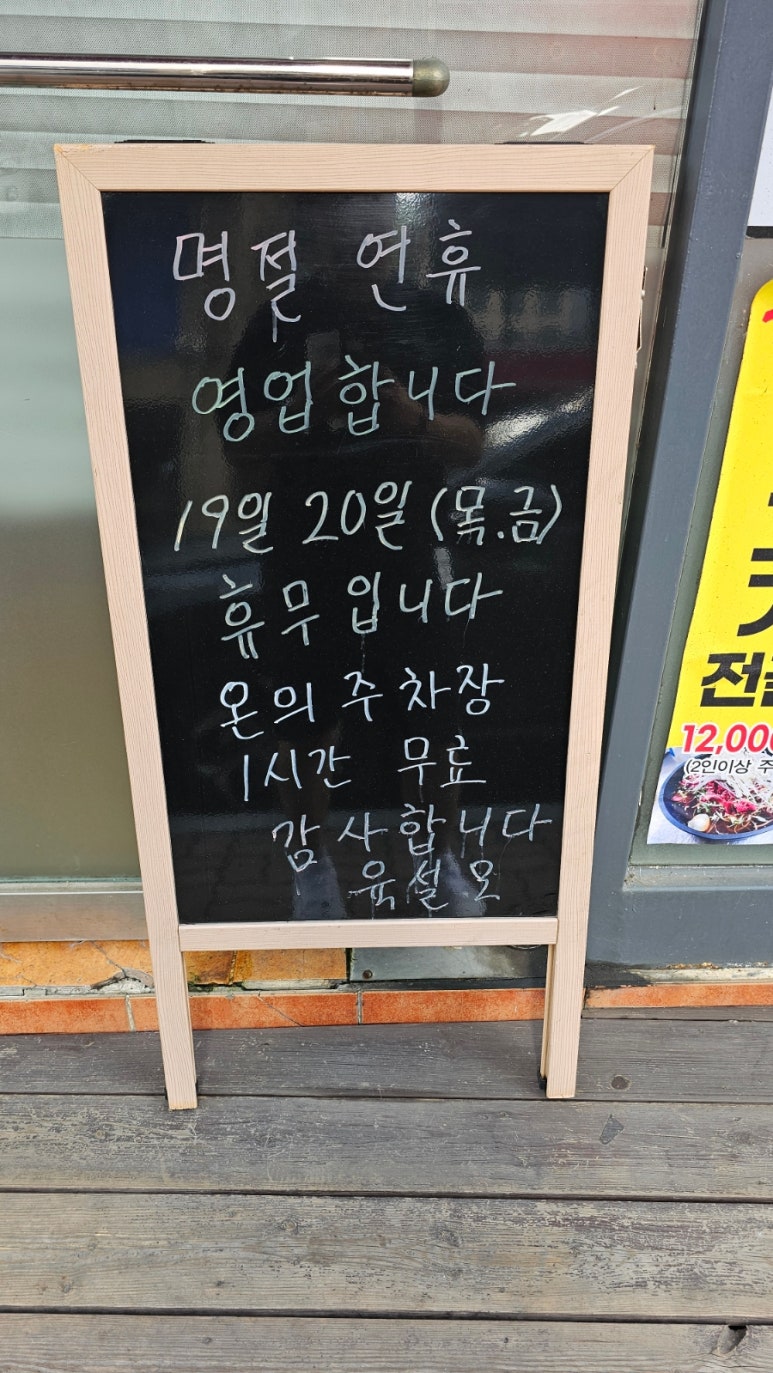 명절 연휴
영업합니다
19일 20일 (목.금)
휴무입니다
온의주차장
1시간 무료
감사합니다
육설오
12,000
(2인이상 주